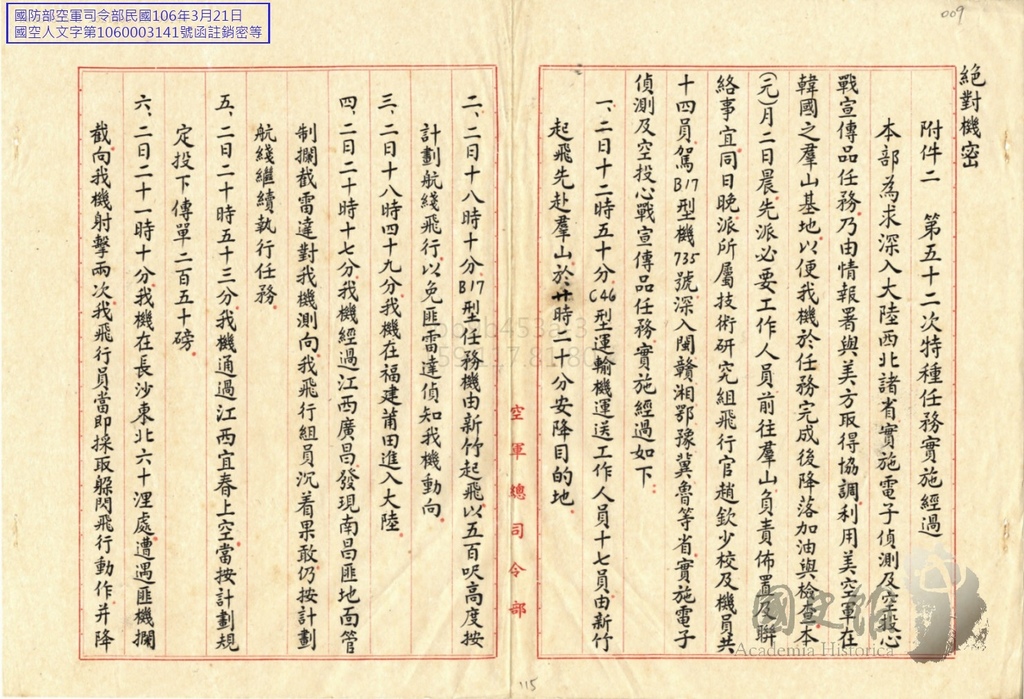 國防部空軍司令部民國106年3月21日
國空人文字第1060003141號函註銷密等
009
絕對機密
附件二　第五十二次特種任務實施經過
本部為求深入大陸西北諸省實施電子偵測及空投心
戰宣傳品任務乃由情報署與美方取得協調利用美空軍在
韓國之羣山基地以便我機於任務完成後降落加油與檢查本
(元)月二日晨先派必要工作人員前往羣山負責佈置及聯
絡事宜同日晚派所屬技術研究組飛行官趙欽少校及機員共
十四員駕B17型機735號深入閩贛湘鄂豫冀魯等省實施電子
偵測及空投心戰宣傳品任務實施經過如下：
一、二日十二時五十分C46型運輸機運送工作人員十七員由新竹
起飛先赴羣山於廿時二十分安降目的地
空軍總司令部
二、二日十八時十分B17型任務機由新竹起飛以五百呎高度按
計劃航綫飛行以免匪雷達偵知我機動向
三、二日十八時四十九分我機在福建莆田進入大陸
四、二日二十時十七分我機經過江西廣昌發現南昌匪地面管
制攔截雷達對我機測向我飛行組員沉着果敢仍按計劃
航綫繼續執行任務
五、二日二十時五十三分我機通過江西宜春上空當按計劃規
定投下傳單二百五十磅
六、二日二十一時十分我機在長沙東北六十浬處遭遇匪機攔
截向我機射擊兩次我飛行員當即採取躲閃飛行動作并降
115
國史館
Academia Historica